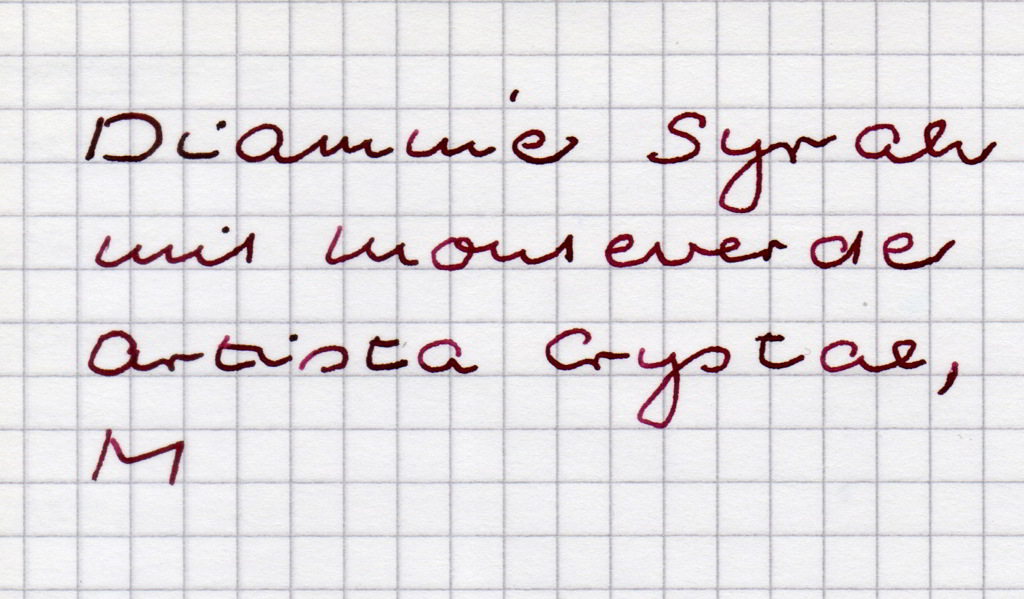 Diamine Syrah
mit Monteverde
Artista Crystal,
M